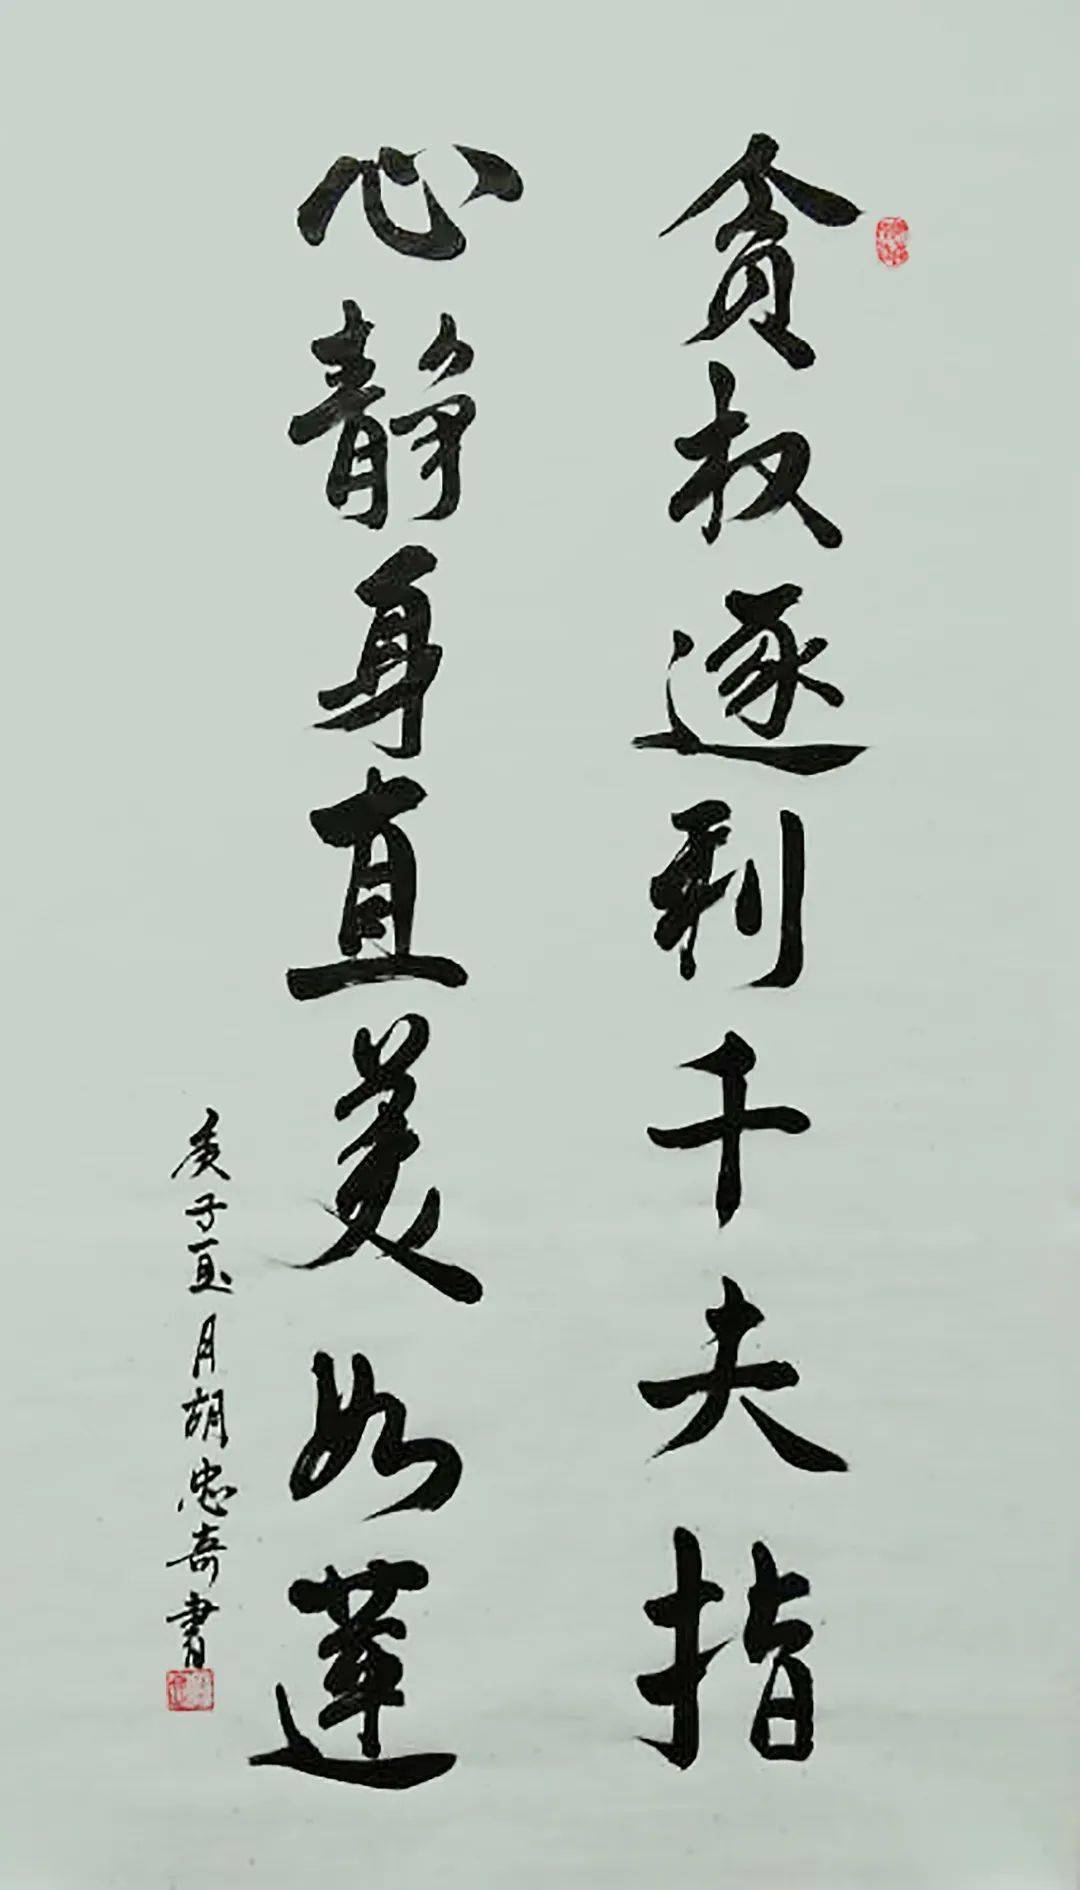 贪权逐利千夫指
心静身直美如莲
庚子夏月胡忠奇书